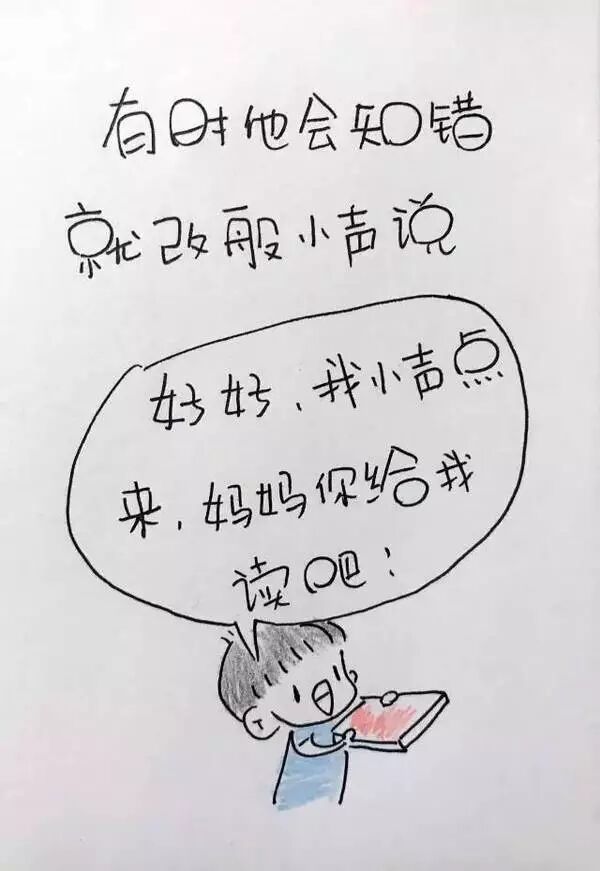 有时他会知错
就改般小声说
好好、我小声点
来,妈妈你给我
读吧!